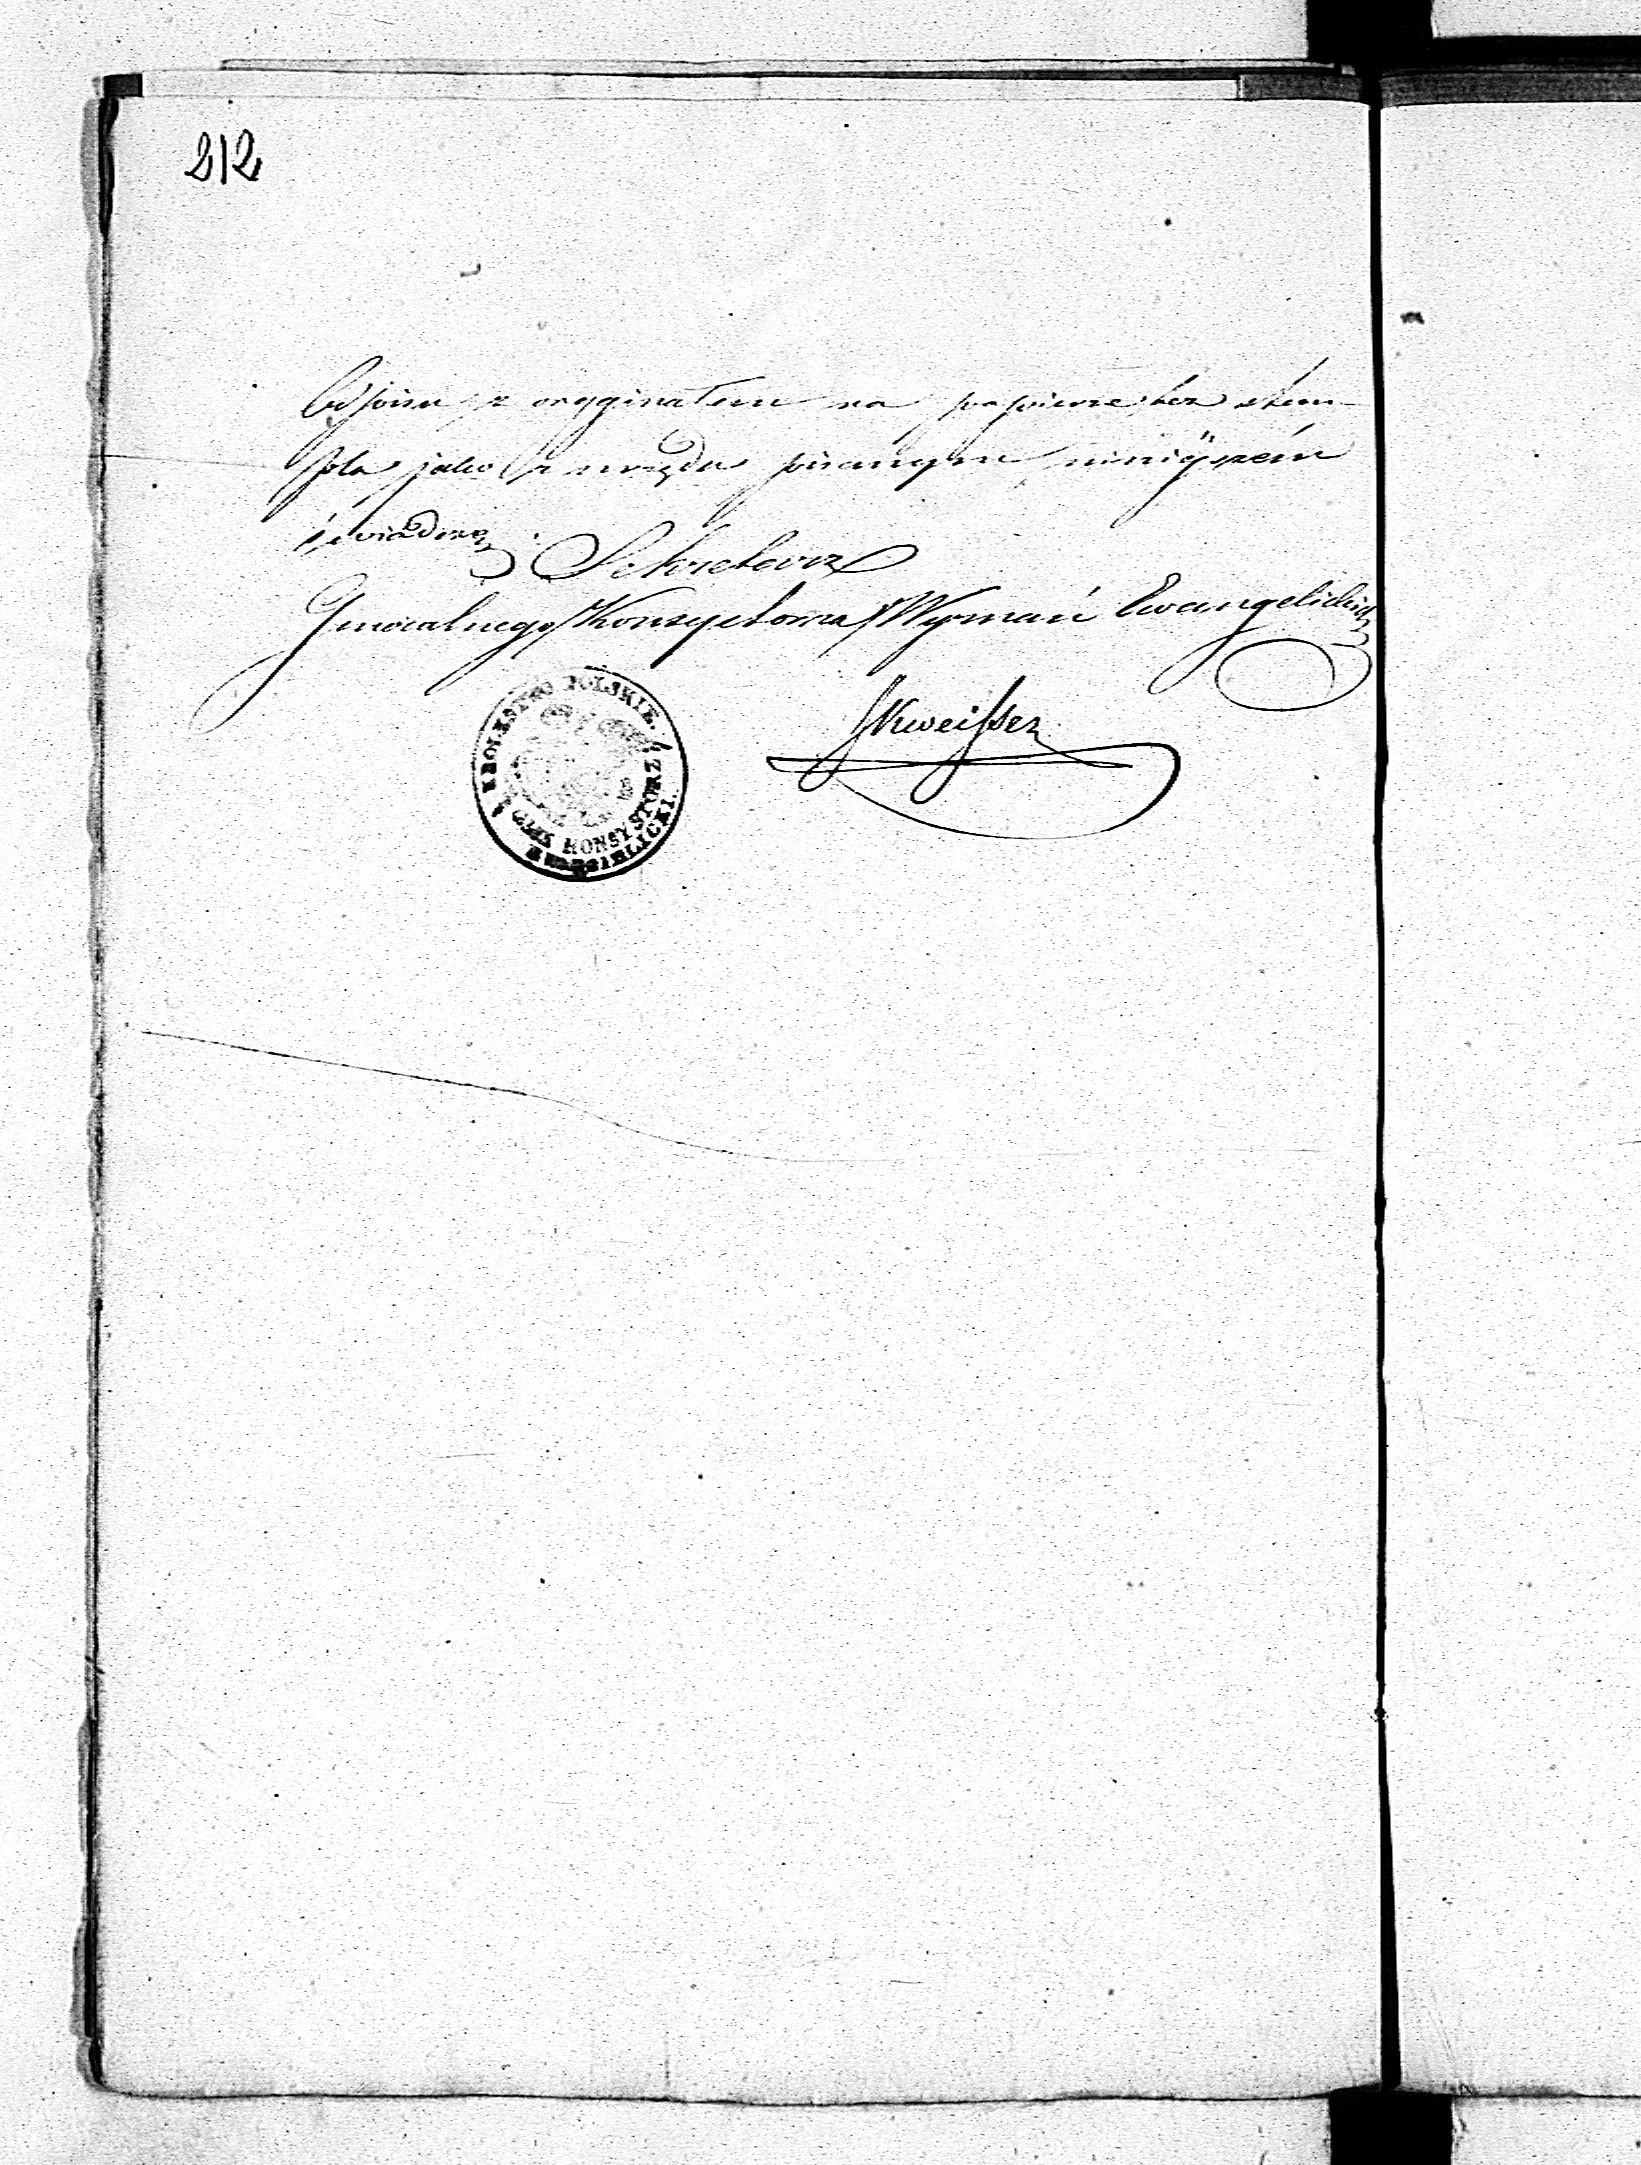 212
Odpisu z oryginałem na papierze bez stem-
pla jako z urzędu pisanym niniejszém
świadczę
Sekretarz
Generalnego Konsystorza Wyznań Ewangelickich
KROLESTWO POLSKIE.
KONSYSTORZ